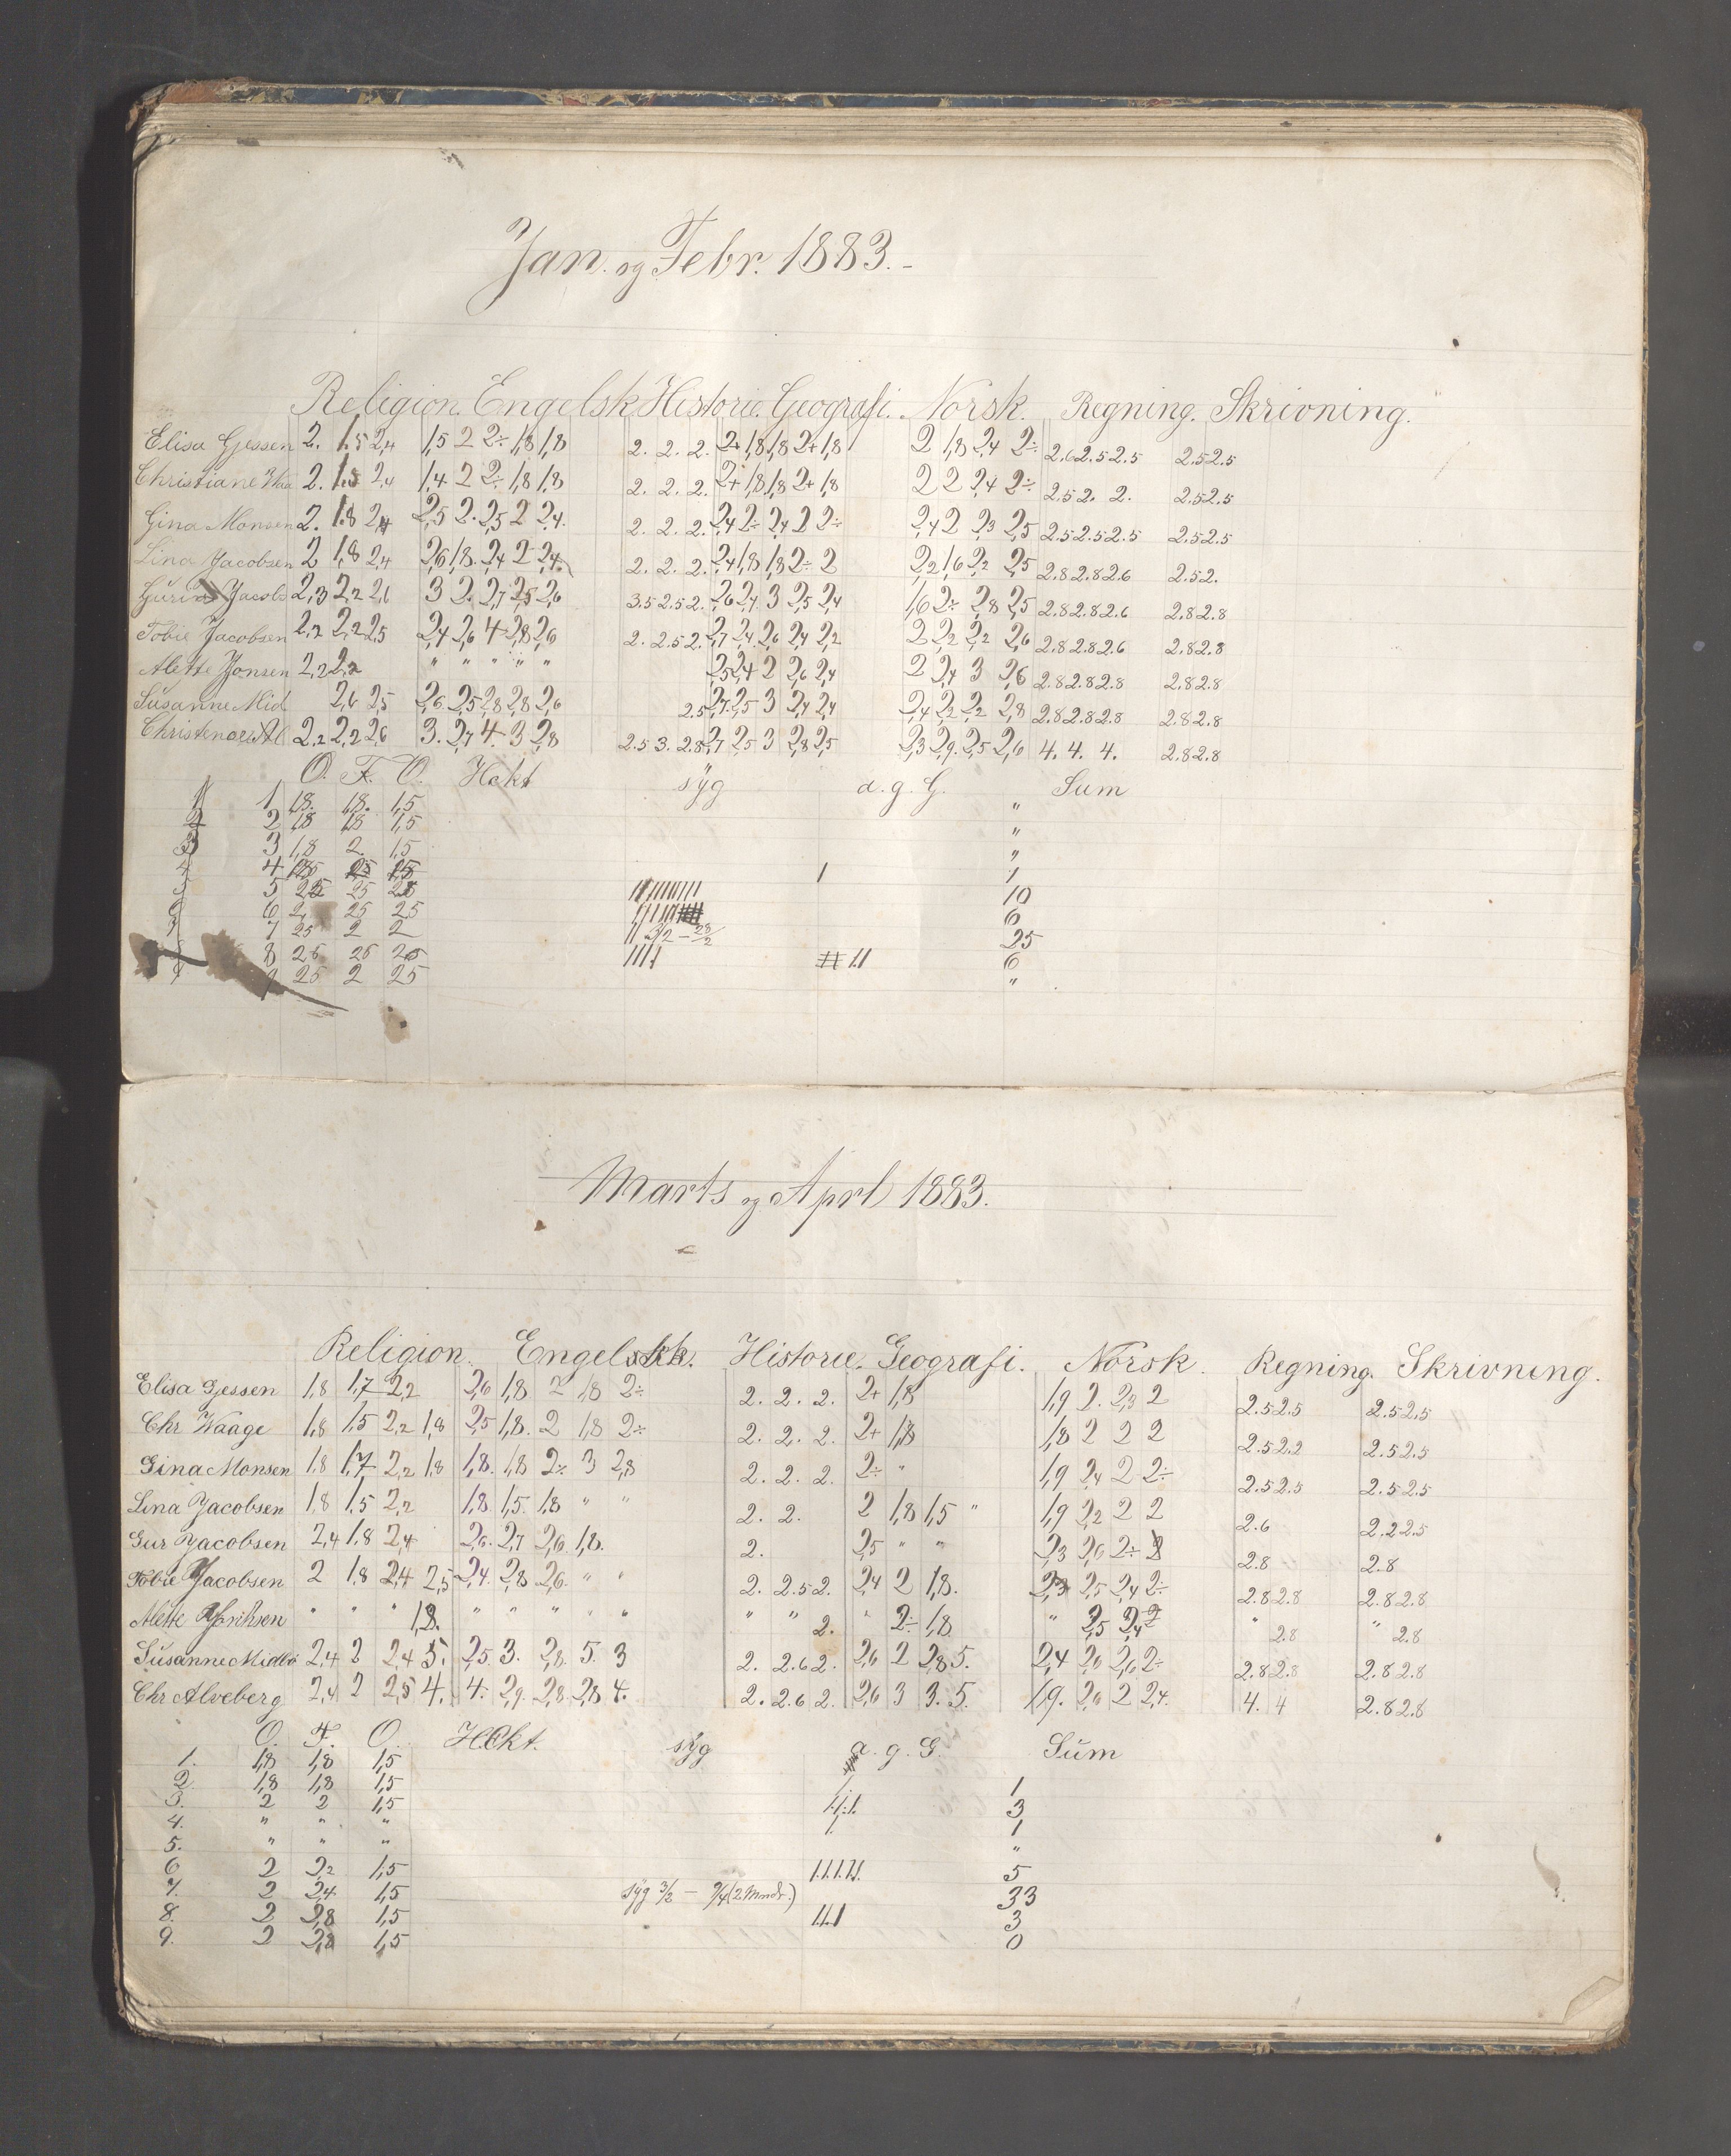 Jan. og Febr. 1883.-
Religion. Engelsk Historie. Geografi. Norsk. Regning. Skrivning.
Elisa Gjessen 2. 1.5 2,4 1,5 2 2÷ 1,8 1,8 2. 2. 2. 2+ 1,8 1,8 2+ 1,8 2 1,8 2,4 2÷ 2.6 2.5 2.5 2.5 2.5
Christiane Waa 2. 1.5 2,4 1,4 2 2÷ 1,8 1,8 2. 2. 2. 2+ 1,8 1,8 2+ 1,8 2 2 2,4 2÷ 2.5 2. 2. 2.5 2.5
Gina Monsen 2. 1.8 2,4 2,5 2. 2,5 2 2,4. 2. 2. 2. 2,4 2÷ 2,4 2 2÷ 2,4 2 2,3 2,5 2.5 2.5 2.5 2.5 2.5
Lina Jacobsen 2 1,8 2,4 2,6 1,8. 2,4 2 2,4. 2. 2. 2. 2,4 1,8 1,8 2÷ 2 2,2 1,6 2,2 2,5 2.8 2.8 2.6 2.5 2.
Gurine Jacobs 2,3 2,2 2,6 3 2. 2,7 2,5 2,6 3.5 2.5 2. 2,6 2,4 3 2,5 2,4 1,6 2÷ 2,8 2,5 2.8 2.8 2.6 2.8 2.8
Tobie Jacobsen 2,2 2,2 2,5 2,4 2,6 4 2,8 2,6 2. 2.5 2. 2,7 2,4 2,6 2,4 2,2 2 2,2 2,2 2,6 2.8 2.8 2.6 2.8 2.8
Alette Jonsen 2,2 2,2 " " " " " 2,5 2,4 2 2,6 2,4 2 2,4 3 2,6 2.8 2.8 2.8 2.8 2.8
Susanne Mid 2,6 2,5 2,6 2,5 2,8 2,8 2,6 2.5 2,7 2,5 3 2,4 2,4 2,4 2,2 2,2 2,8 2.8 2.8 2.8 2.8 2.8
2,2 2,2 2,6 3. 2,7 4. 3 2,8 2.5 3. 2.8 2,7 2,5 3 2,8 2,5 2,3 2,9. 2,5 2,6 4. 4. 4. 2.8 2.8
O. F. O. Hekt syg a. g. G. Sum
1 1 1,8. 1,8. 1,5 "
2 2 1,8 1,8 1,5 "
3 3 1,8 2. 1,5 "
4 4 1 1
5 5 25 10
6 6 2 25 25 6
7 7 25 2 2 3/2 - 28/2 25
8 26 26 26 6
9 25 2 25 "
Marts og Aprl 1883.
Religion. Historie. Geografi. Norsk. Regning. Skrivning.
Elisa Gjessen 1,8 1,7 2,2 2,6 1,8 2 1,8 2÷ 2. 2. 2. 2+ 1,8 1,9 2. 2,3 2 2.5 2.5 2.5 2.5
Chr Waage 1,8 1,5 2,2 1,8 2,5 1,8. 2 1,8 2÷ 2. 2. 2. 2+ 1,8 1,8 2 2 2 2.5 2.2 2.5 2.5
Gina Monsen 1,8 1,7 2,2 1,8 1,8. 1,8 2÷ 3 2,8 2. 2. 2. 2÷ " 1,9 2,4 2 2÷ 2.5 2.5 2.5 2.5
Lina Jacobsen 1,8 1,5 2,2 1,8 1,5. 1,8 " " 2. 2. 2 1,8 1,5 " 1,9 2,2 2 2 2.6 2.2 2.5
Gur Jacobsen 2,4 1,8 2,4 2,6. 2,7 2,6 1,8. 2. 2,5 " " 2,3 2,6 2÷ 2.8 2.8
Tobie Jacobsen 2 1,8 2,4 2,5 2,4. 2,8 2,6. " " 2. 2.5 2. 2,4 2 1,8. 2,5 2,4 2÷ 2.8 2.8 2.8 2.8
Alette " " " 1,8. " " " " " " " 2. " 2÷ 1,8 " 2,5 2,4 2 " 2.8 " 2.8
Susanne Midbø 2,4 2 2,4 5. 2,5 3. 2,8. 5. 3 2. 2.6 2. 2,6 2 2,8 5. 2,4 2,6 2,6 2÷ 2.8 2.8 2.8 2.8
Chr Alveberg 2,4 2 2,5 4. 4. 2,9. 2,8. 2,8 4. 2. 2.6 2. 2,6 3 3. 5. 1,9. 2,6 2 2,4. 4. 4 2.8 2.8
O. F. O. Hekt. syg a. g. G. Sum
1. 1,8 1,8 1,5 1
2. 1,8 1,8 1,5 3
3. 2 2 1,5 1
4. " " "
5. " " " "
6 2 2,2 1,5 5
7. 2 2,4 1,5 syg 3/2 - 9/4 (2 Mndr.) 33
8. 2 2,8 1,5 3
9. 2 2,8 1,5 0